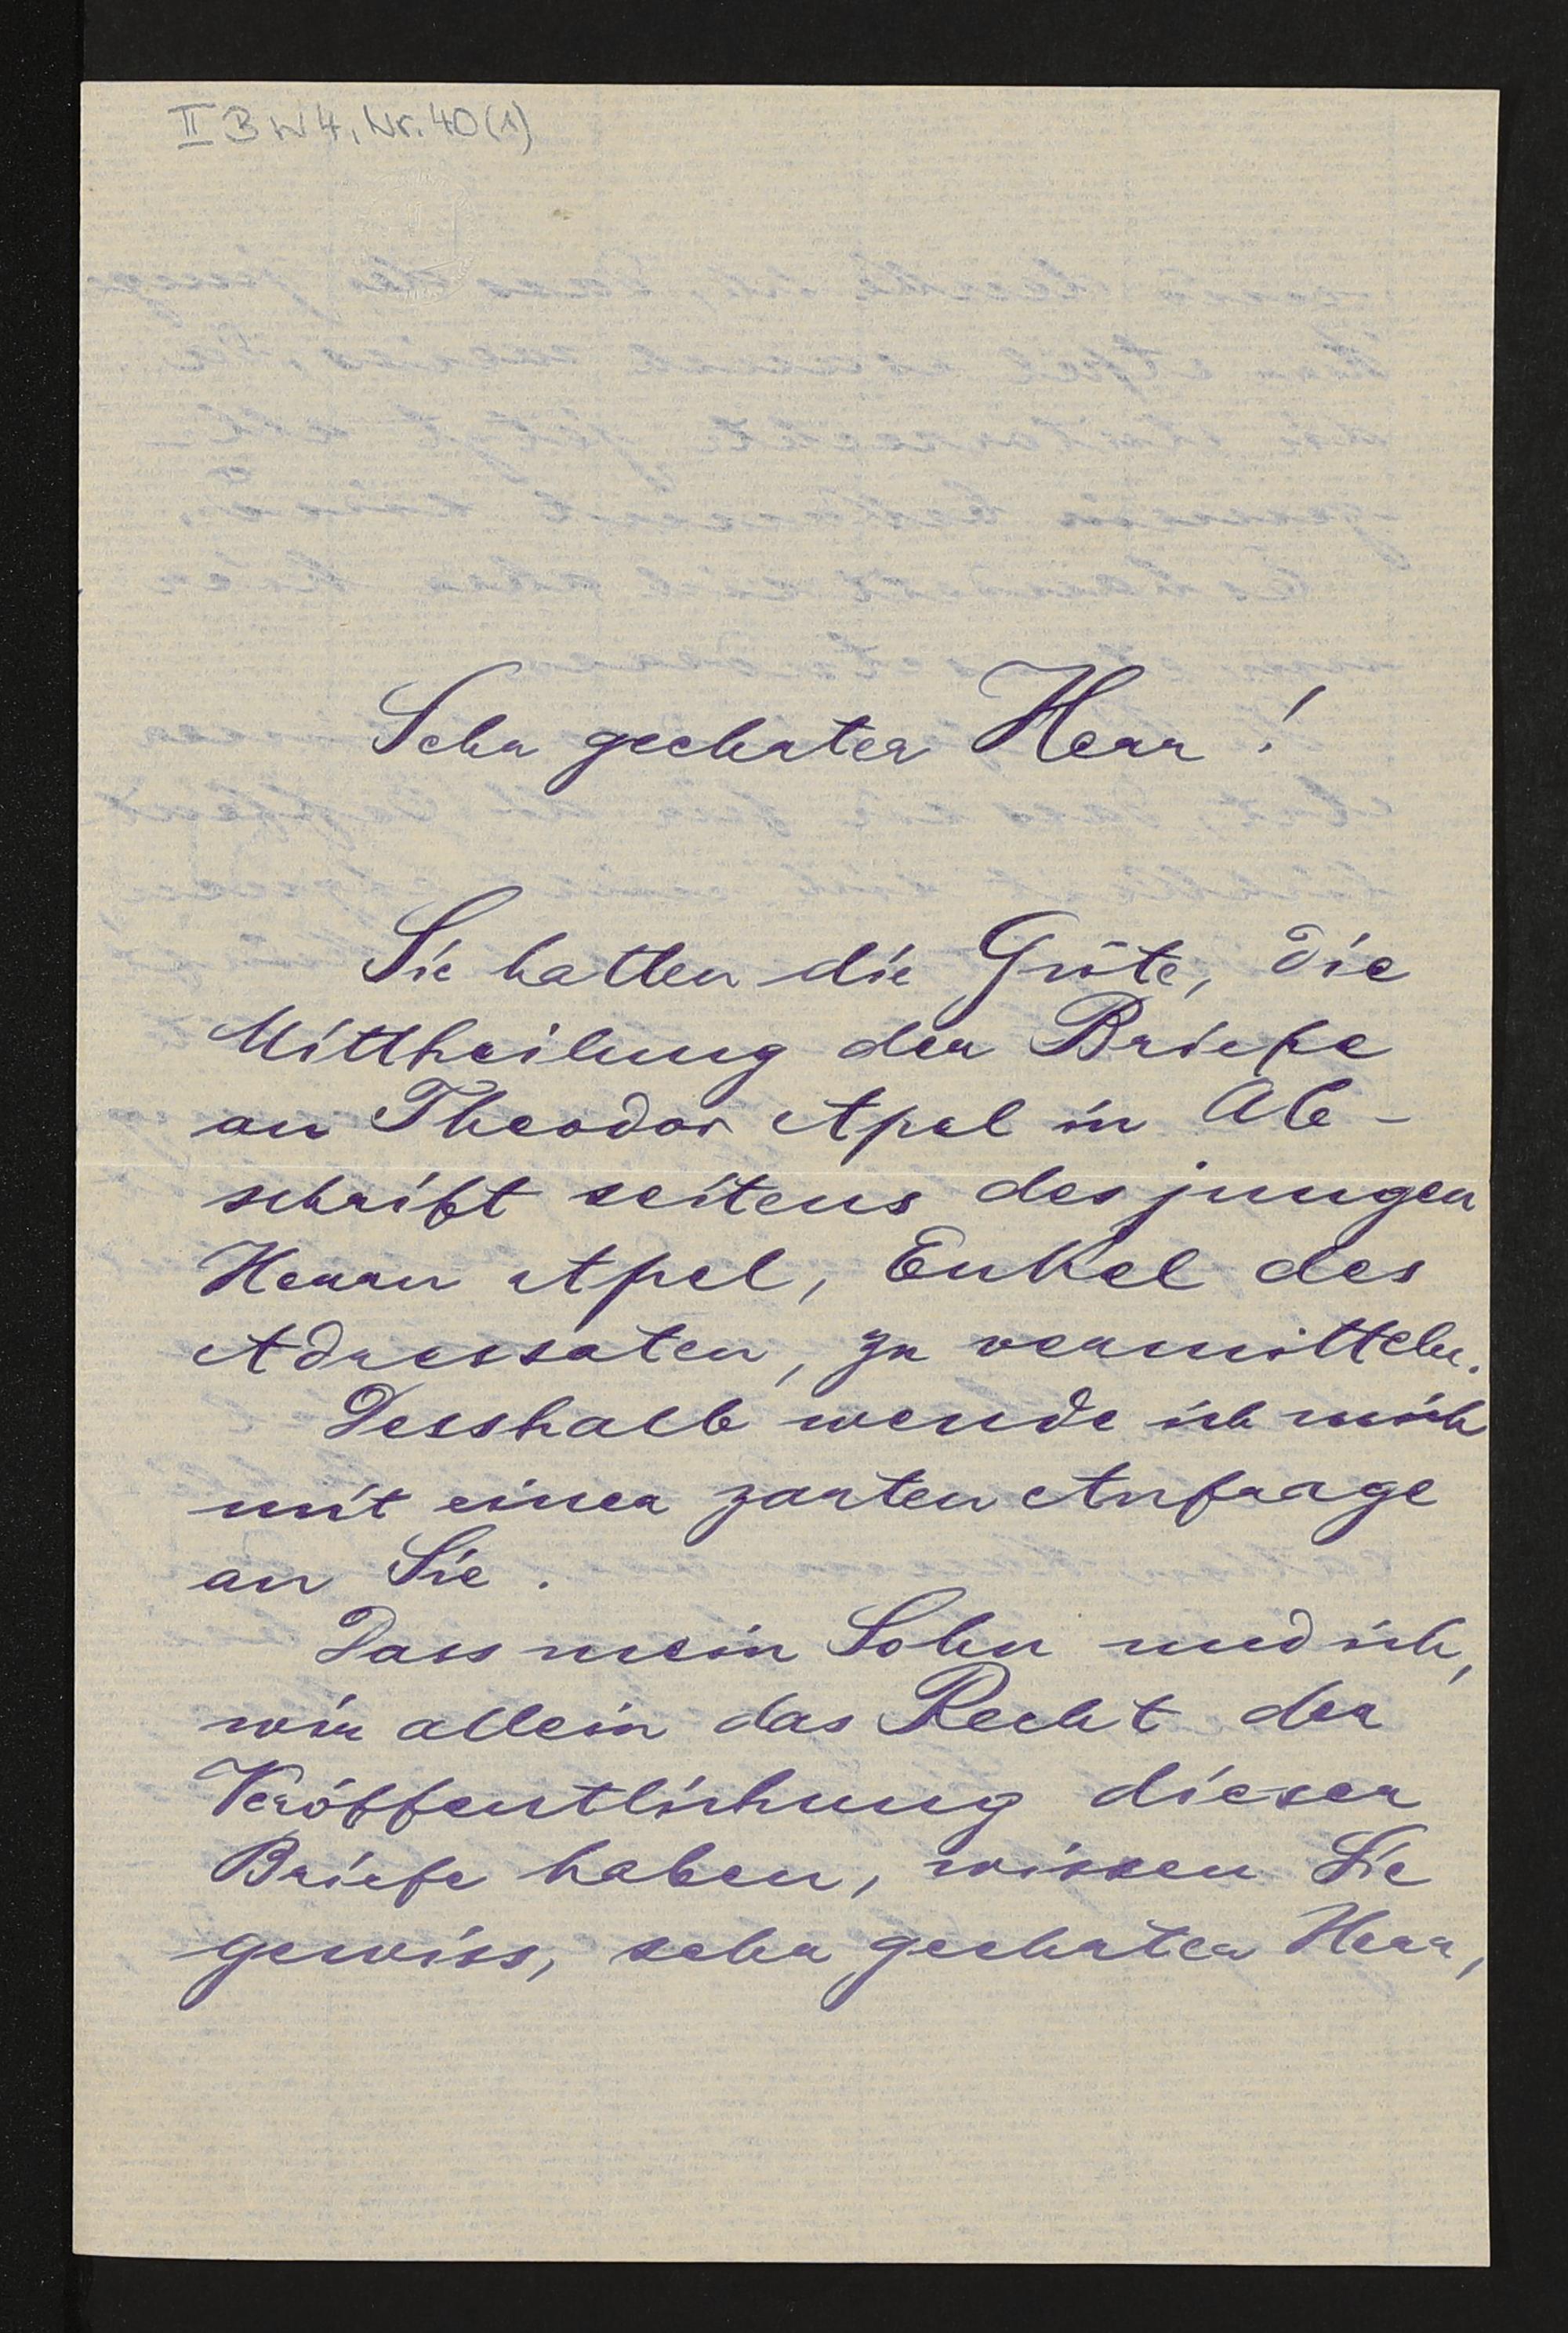 II B W 4, Nr. 40 (1)
Sehr geehrter Herr!
Sie hatten die Güte, die
Mittheilung der Briefe
an Theodor Apel in Ab-
schrift seitens des jungen
Herrn Apel, Enkel des
Adressaten, zu vermitteln.
Desshalb wende ich mich
mit einer zarten Anfrage
an Sie.
Dass mein Sohn und ich,
wir allein das Recht der
Veröffentlichung dieser
Briefe haben, wissen Sie
gewiss, sehr geehrter Herr,